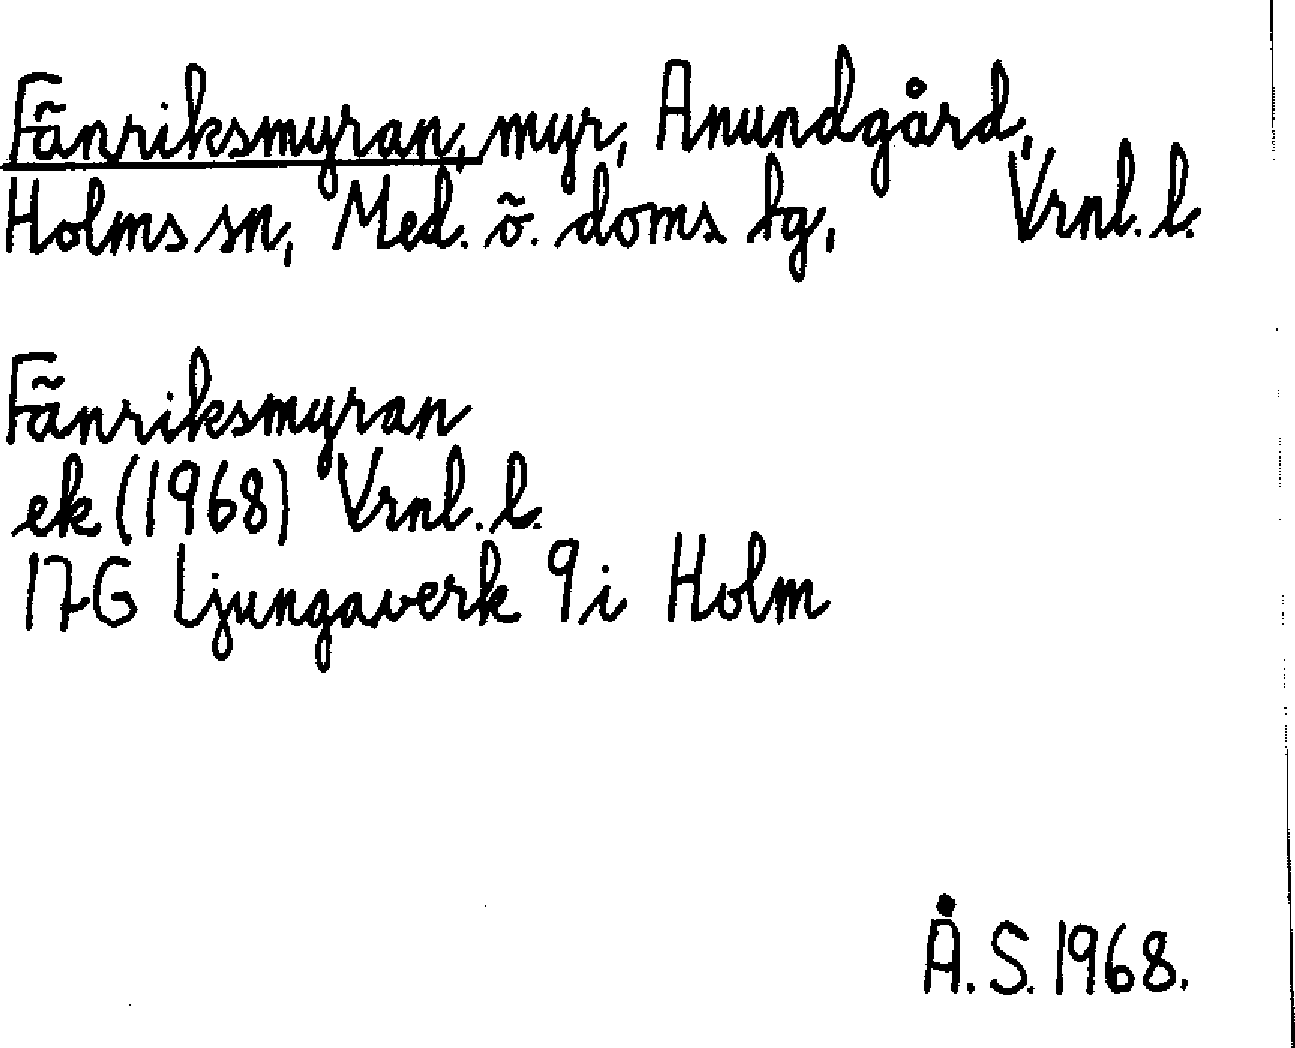 Fänriksmyran, myr, Anundgård,
Holms sn, Med. ö. doms. hg, Vrnl. l.
Fänriksmyran
ek (1968) Vrnl. l.
17G Ljungaverk 9i Holm
Å. S. 1968.